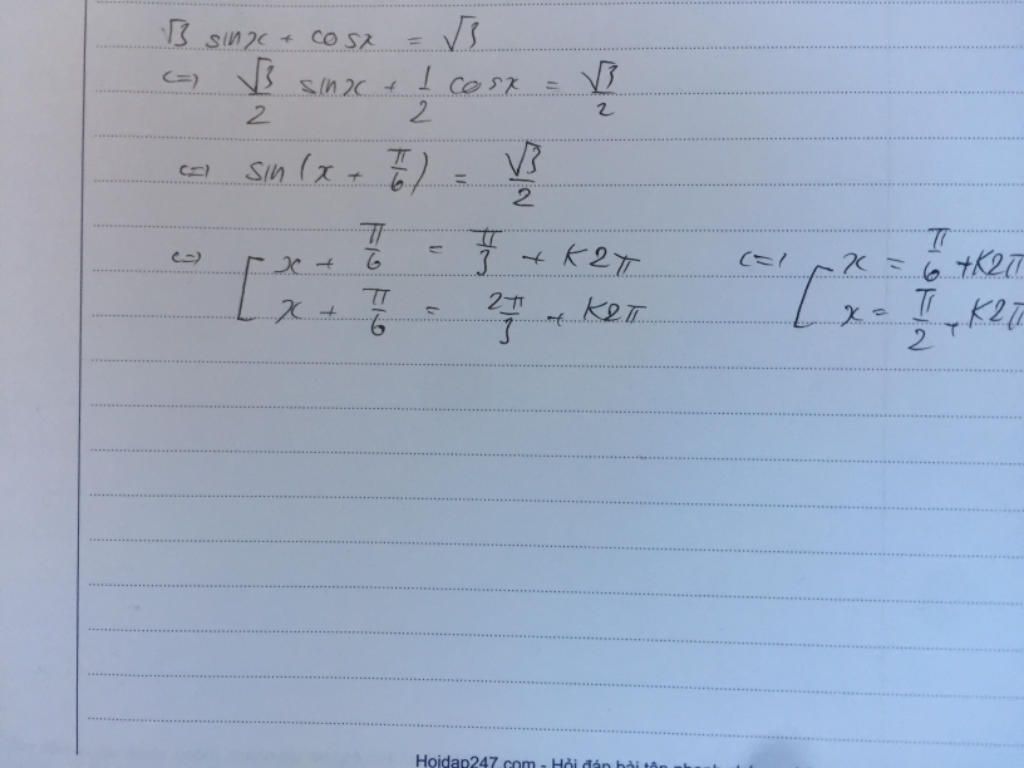 √3 sinx + cosx = √3
<=> √3/2 sinx + 1/2 cosx = √3/2
<=> sin(x + π/6) = √3/2
<=> [ x + π/6 = π/3 + K2π <=> [ x = π/6 + K2π
x + π/6 = 2π/3 + K2π x = π/2 + K2π
Hoidap247.com - Hỏi đáp bài tập